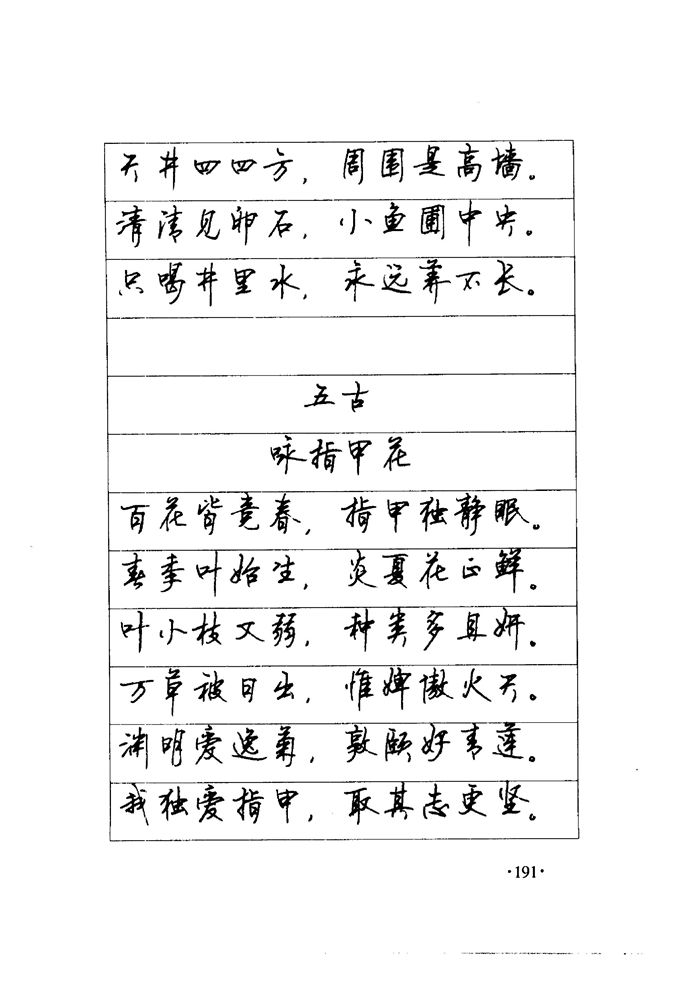 天井四四方，周围是高墙。
清清见卵石，小鱼囿中央。
只喝井里水，永远养不长。
五古
咏指甲花
百花皆竞春，指甲独静眠。
春季叶始生，炎夏花正鲜。
叶小枝又弱，种类多且妍。
万草被日出，惟婢傲火天。
渊明爱逸菊，敦颐好青莲。
我独爱指甲，取其志更坚。
·191·